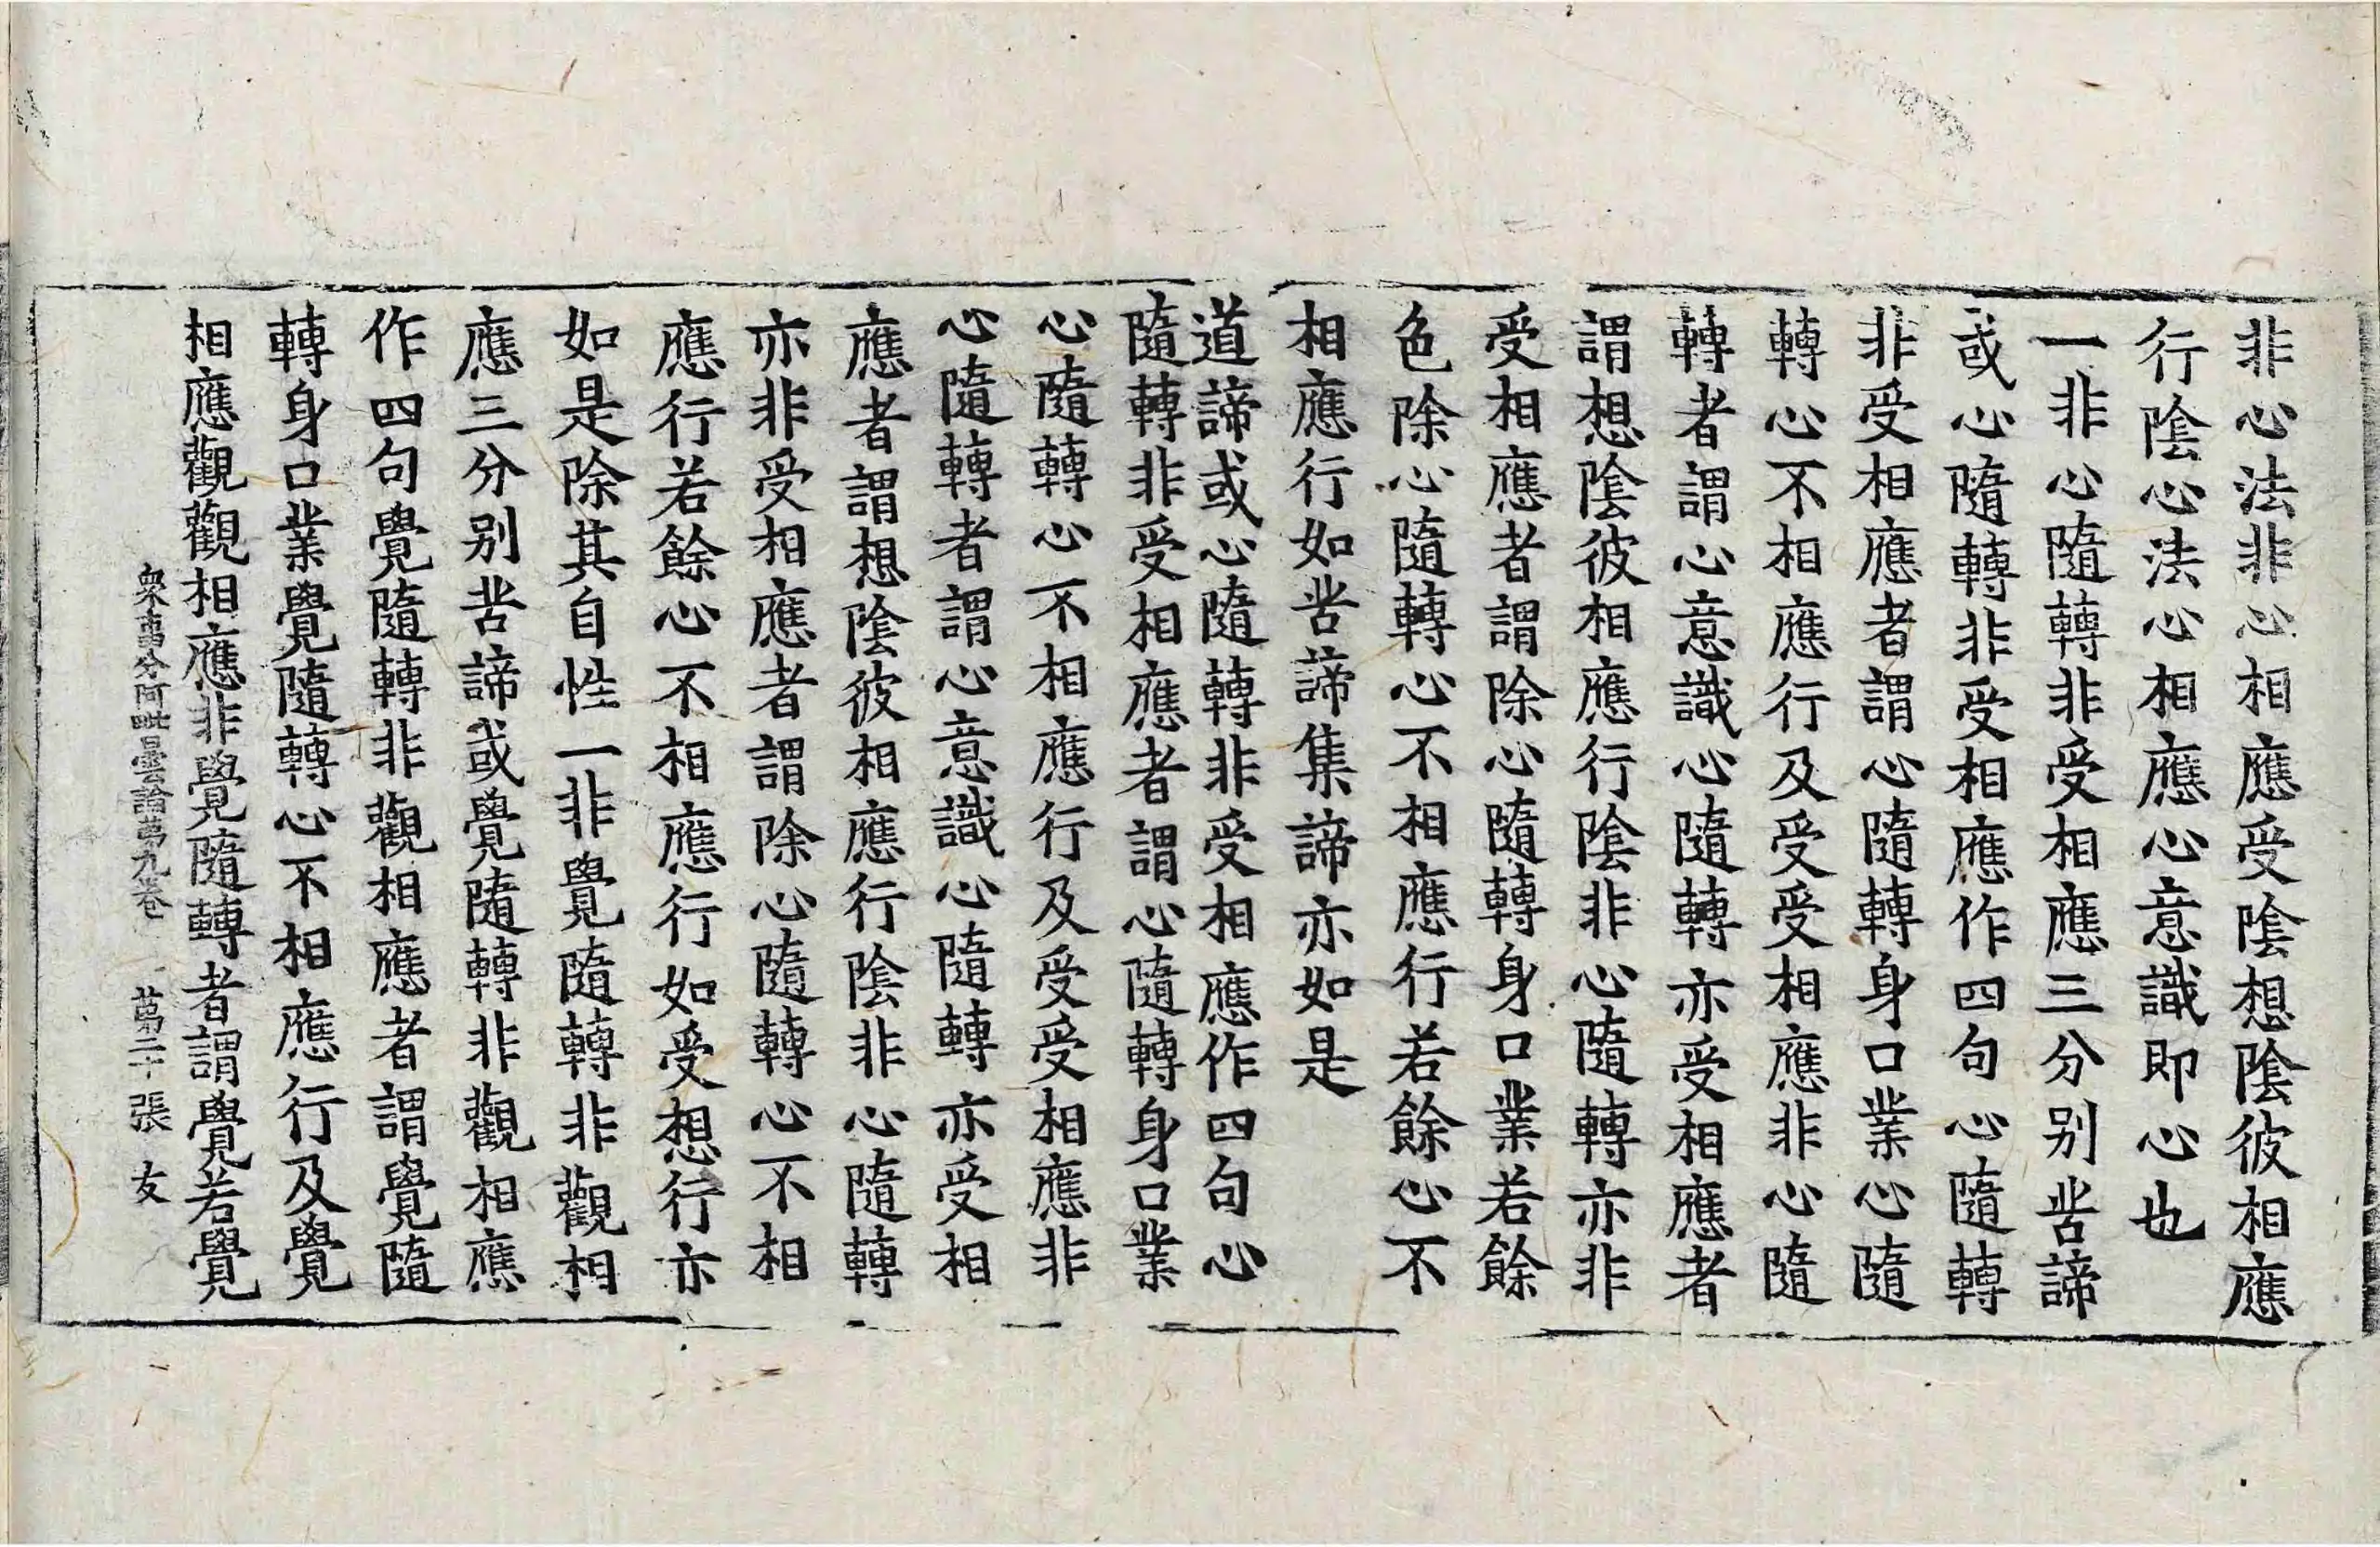 非心法非心相應受陰想陰彼相應
行陰心法心相應心意識即心也
一非心隨轉非受相應三分别苦諦
或心隨轉非受相應作四句心隨轉
非受相應者謂心隨轉身口業心隨
轉心不相應行及受受相應非心隨
轉者謂心意識心隨轉亦受相應者
謂想陰彼相應行陰非心隨轉亦非
受相應者謂除心隨轉身口業若餘
色除心隨轉心不相應行若餘心不
相應行如苦諦集諦亦如是
道諦或心隨轉非受相應作四句心
隨轉非受相應者謂心隨轉身口業
心隨轉心不相應行及受受相應非
心隨轉者謂心意識心隨轉亦受相
應者謂想陰彼相應行陰非心隨轉
亦非受相應者謂除心隨轉心不相
應行若餘心不相應行如受想行亦
如是除其自性一非覺隨轉非觀相
應三分别苦諦或覺隨轉非觀相應
作四句覺隨轉非觀相應者謂覺隨
轉身口業覺隨轉心不相應行及覺
相應觀觀相應非覺隨轉者謂覺若覺
衆事分阿毗曇論苐九卷 苐二十張 友